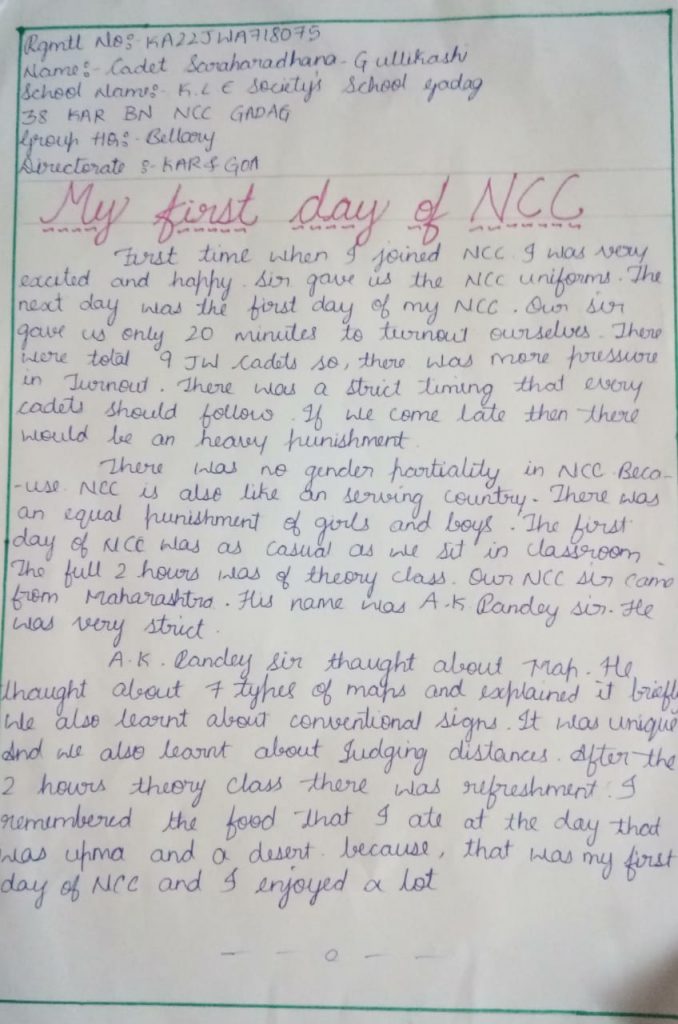 Rgmtl No:- KA22JWA718075
Name:- Cadet Saraharadhana. Gullikashi
School Name:- K.L.E Society's School Gadag
38 KAR BN NCC GADAG
Group HQ:- Bellary
Directorate :- KAR & GOA
My first day of NCC
First time when I joined NCC I was very
excited and happy. Sir gave us the NCC uniforms. The
next day was the first day of my NCC. Our sir
gave us only 20 minutes to turnout ourselves. There
were total 9 JW cadets so, there was more pressure
in Turnout. There was a strict timing that every
cadets should follow. If we come late then there
would be an heavy punishment
There was no gender partiality in NCC Beca-
-use NCC is also like an serving country. There was
an equal punishment of girls and boys. The first
day of NCC was as casual as we sit in classroom.
The full 2 hours was of theory class. Our NCC sir came
from Maharashtra. His name was A.K. Pandey sir. He
was very strict.
A.K. Pandey sir thaught about Map. He
thaught about 7 types of maps and explained it briefly
We also learnt about conventional signs. It was unique
And we also learnt about Judging distances. After the
2 hours theory class there was refreshment. I
remembered the food that I ate at the day that
was upma and a desert. because, that was my first
day of NCC and I enjoyed a lot
— — o — —